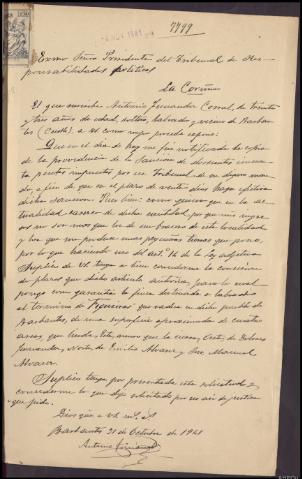 7799
Excmo Señor Presidente del Tribunal de Res-
ponsabilidades Políticas
La Coruña
El que suscribe Antonio Fernandez Corral, de treinta
y tres años de edad, soltero, labrador y vecino de Barban-
tes (Cenlle) a V.E. como mejor proceda expone:
Que en el dia de hoy me fué notificada la copia
de la providencia de la sancion de doscientas cincuen-
ta pesetas impuestas por ese Tribunal de su digno man-
do, a fin de que en el plazo de veinte dias haga efectiva
dicha sancion. Pues bien: como quiera que en la ac-
tualidad carezco de dicha cantidad, por que mis ingre-
sos no son mas que los de un bracero de esta localidad
y los que me producen unas pequeñas tierras que poseo,
por lo que haciendo uso del art. 14 de la Ley
Suplico de V.E. tenga a bien concederme la concesion
de plazos que dicho articulo autoriza, para lo cual
pongo como garantia la finca destinada a labradio
al termino de Figueiras que radica en dicho pueblo de
Barbantes, de una superficie aproximada de cuatro
areas, que linda Este, Oeste, de Dolores
Fernandez, Norte de Emilio Alvarez y Sur Manuel
Alvarez.
Suplico tenga por presentada esta solicitud y
concederme lo que dejo solicitado por ser asi de justicia
que pido.
Dios gûe a V.E. m. a.
Barbantes 21 de Octubre de 1941
Antonio Fernandez